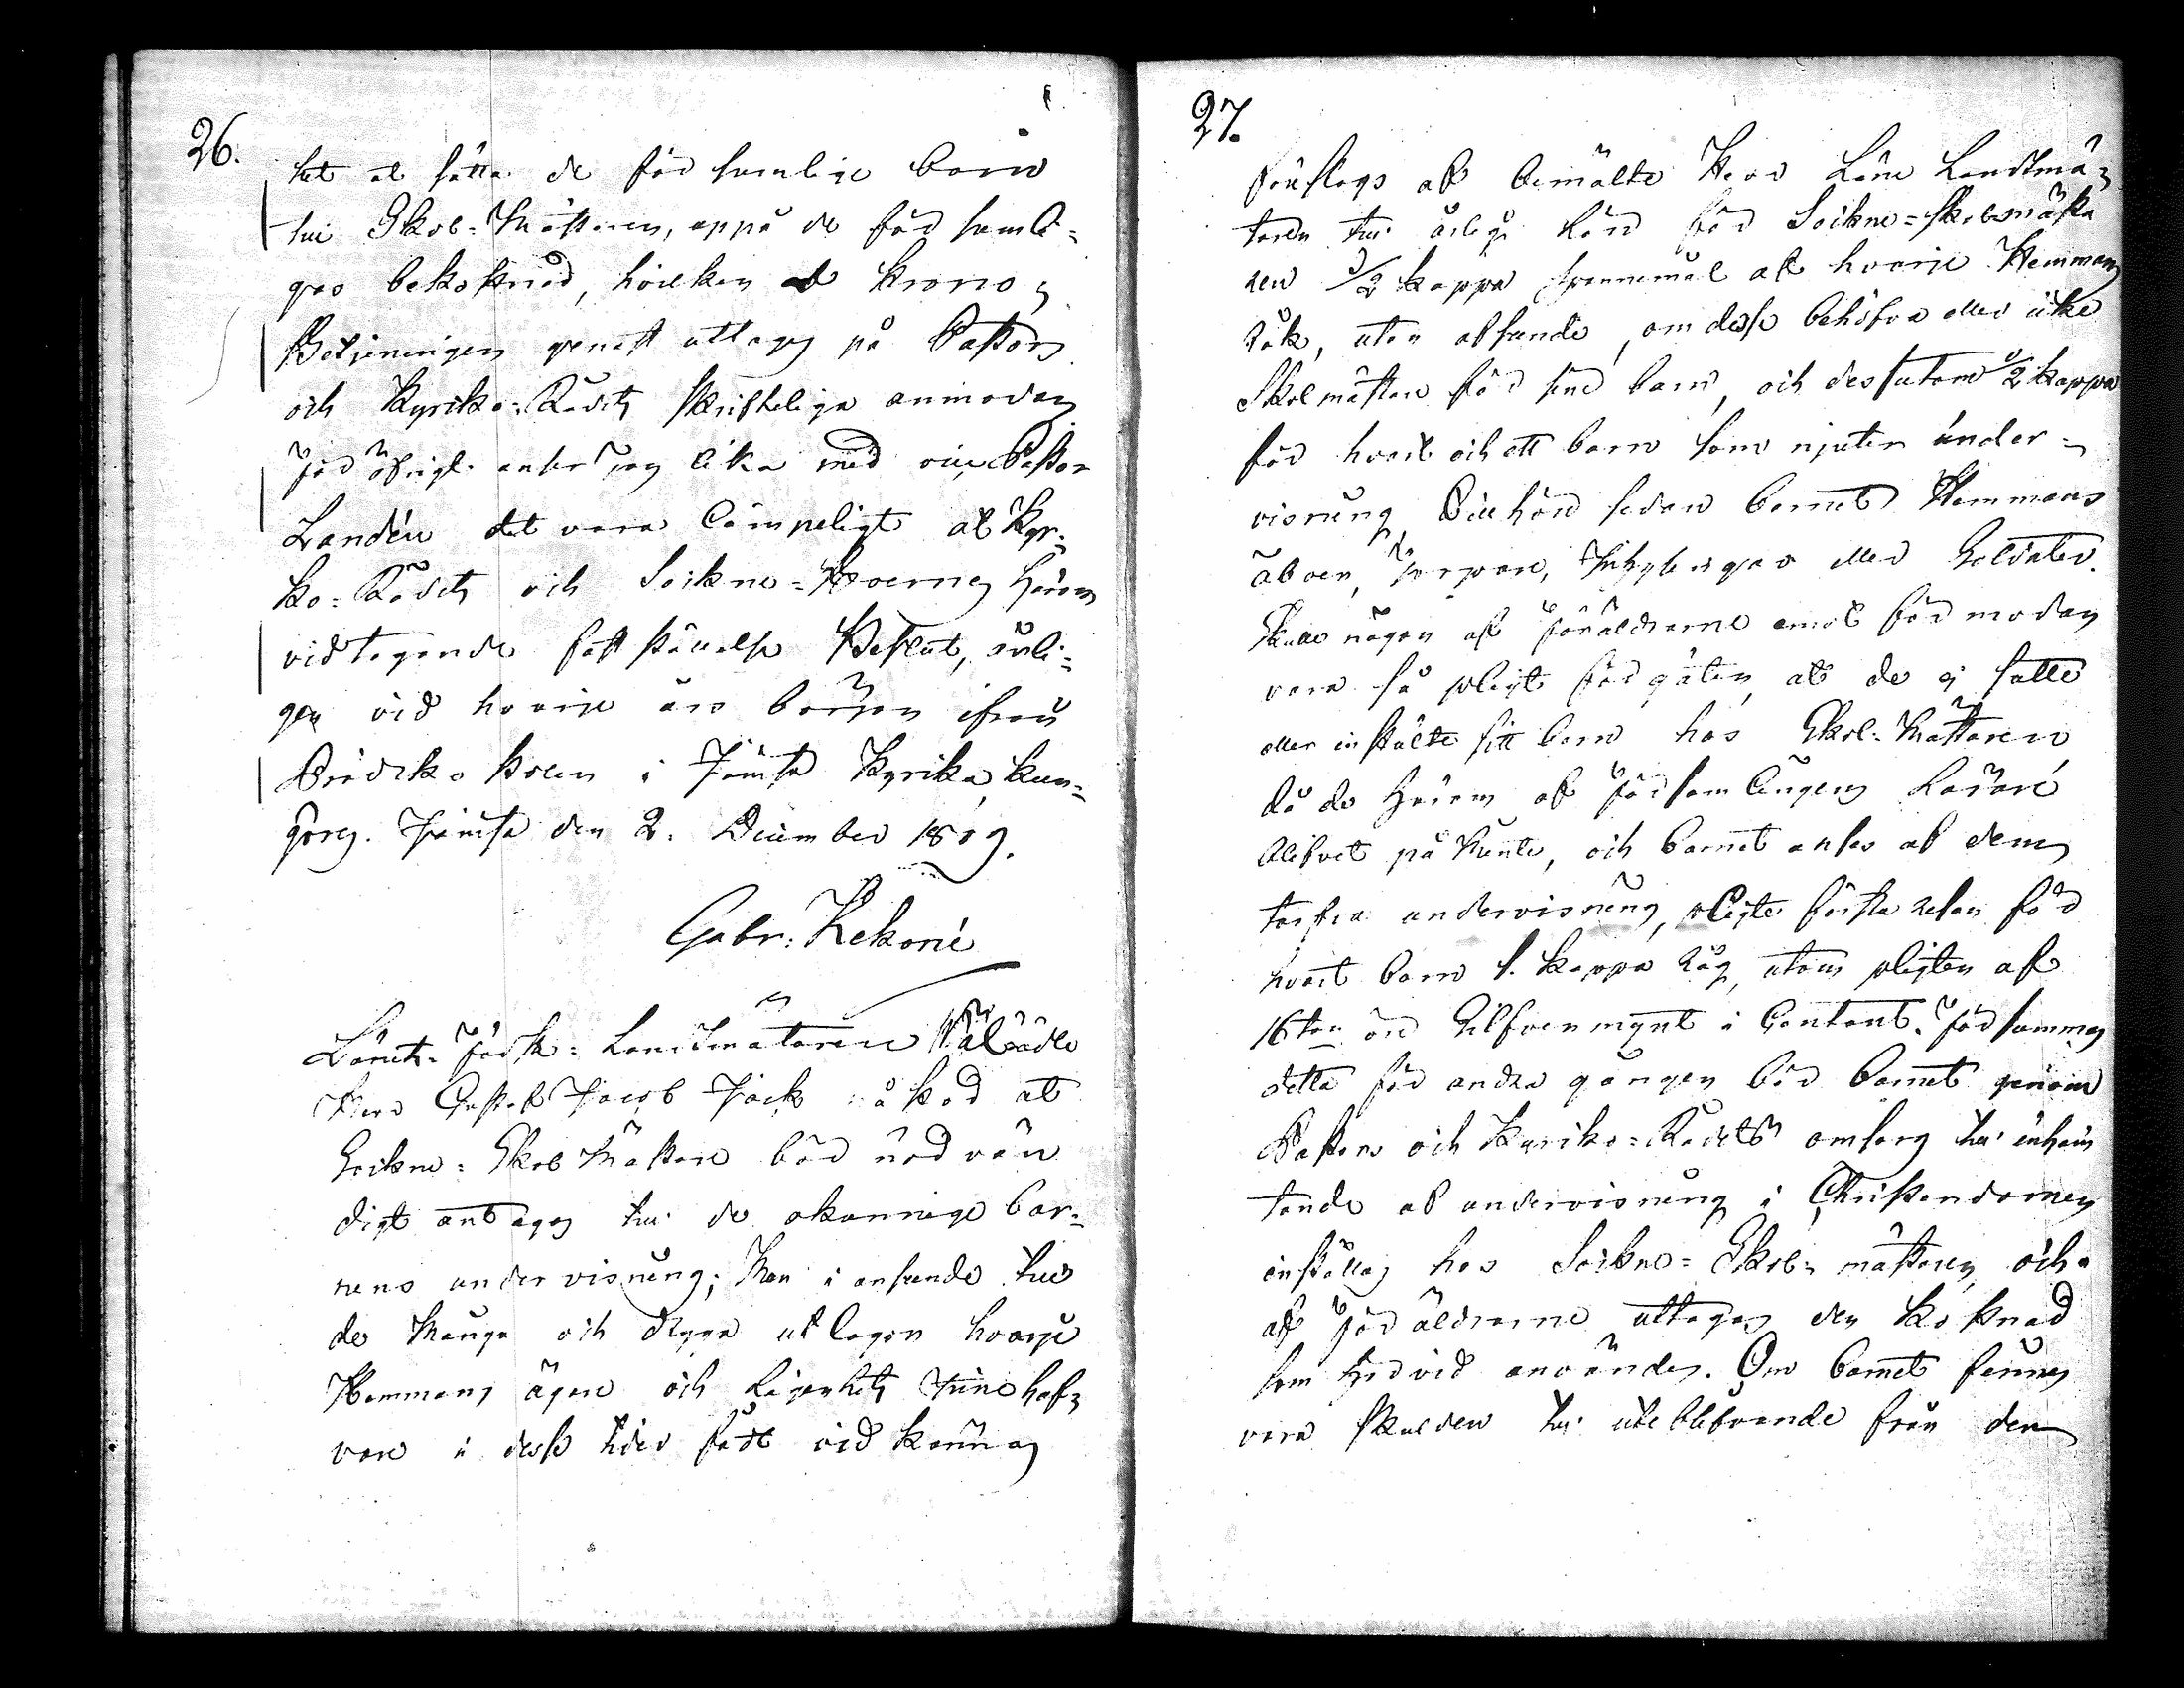 26.
het at sätta de försumlige barn
till Skol-Mästaren, uppå de försumli=
gas bekostnad, hvilken af Krono=
Betjeningen genast uttages på Pastors
och Kyrko-Rådets skrifteliga anmodan
För öfrigt anser jag lika med vice Pastor
Landén det vara lämpeligt at Kyr=
ko-Rådets och Sockne- härom
vidtagende fastställelse Beslut, årli=
gen vid hvarje års början ifrån
Prediko stolen i Jämsä Kyrka kun=
göres. Jämsä den 2. December 1809.
Gabr:
Länets- Landtmätaren Väl ädle
Herr Gustaf Jacob Jack at
Sockne-Skol Mästare bör nödvän
digt antagas till de okunnige bar=
nens undervisning; Men i anseende till
de många och dryga utlagor hvarje
Hemmans ägare och Lägenhets Innehaf=
vare i desse tider fådt vidkännas
27.
föreslogs af bemälte Herr Läns Landtmä=
taren till årlig lön för Sockne-skolmästa
ren 1/2 kappa spannemål af hvarje Hemmans
Rök, utan afseende, om desse behöfva eller icke
Skolmästare för sine barn, och dessutom 2 kappar
för hvart och ett barn som njuter under=
visning, Tillhöre sedan barnet Hemmans
åboen, Torpare, Inhysingar eller Soldater.
Skulle någon af Föräldrarne emot förmodan
vara så pligt förgäten, at de ej satte
eller instälte sitt barn hos Skol-Mästaren
då de härom af Församlingens Lärare
blifvit påminte, och barnet anses af dem
tarfva undervisning, pligte första resan för
hvart barn 1. kappa Råg, utom pligten af
16ton öre Silfvermynt i Contant. Försummas
detta för andra gången bör barnet genom
Pastors och Kyrko-Rådets omsorg till inhäm
tande af undervisning i Christendomen
inställas hos Sockne-Skol-mästaren och
af Föräldrarne uttages den kostnad
som hervid användes. Om barnet finnes
vara skulden till uteblifvande från den